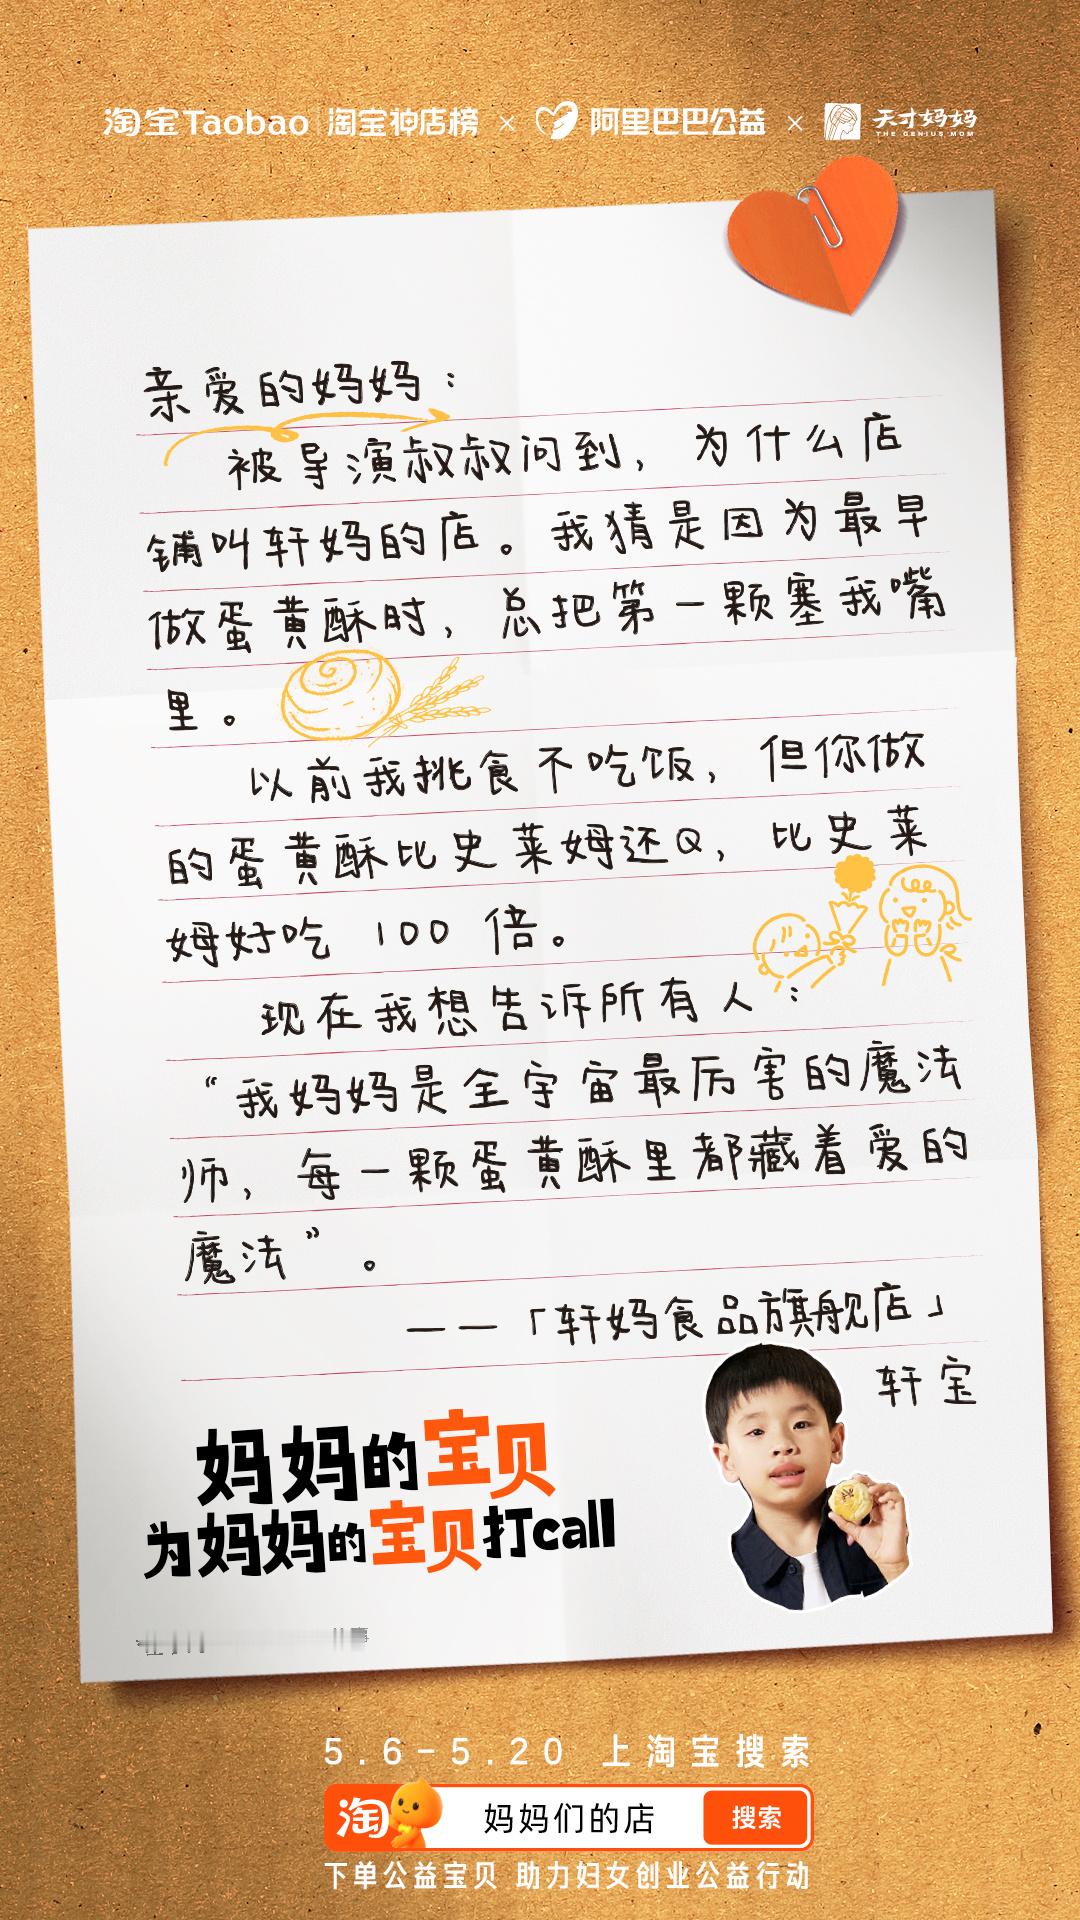 淘宝Taobao 淘宝神店榜 × 阿里巴巴公益 × 天才妈妈
THE GENIUS MOM
亲爱的妈妈：
被导演叔叔问到，为什么店
铺叫轩妈的店。我猜是因为最早
做蛋黄酥时，总把第一颗塞我嘴
里。
以前我挑食不吃饭，但你做
的蛋黄酥比史莱姆还Q，比史莱
姆好吃 100 倍。
现在我想告诉所有人：
“我妈妈是全宇宙最厉害的魔法
师，每一颗蛋黄酥里都藏着爱的
魔法”。
——「轩妈食品旗舰店」
轩宝
妈妈的宝贝
为妈妈的宝贝打call
5.6-5.20 上淘宝搜索
淘 妈妈们的店 搜索
下单公益宝贝 助力妇女创业公益行动